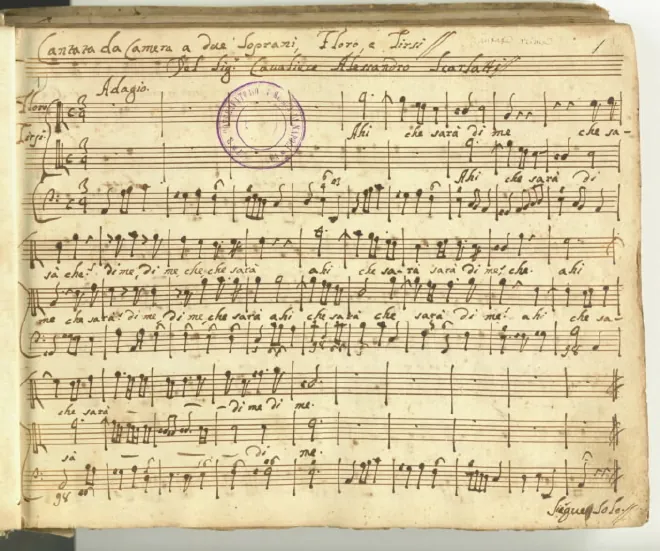 Cantata da Camera a due Soprani, Floro, e Tirsi
Del Sig.r Cavaliere Alessandro Scarlatti
1
Adagio.
Floro
Ahi che sarà di me che sa-
Tirsi
Ahi che sarà di
sà che! di me, di me che che sarà ahi che sa-rà sarà di me! che. ahi
me che sarà! di me, di me che sarà ahi che sarà che sarà di me! ahi che sa-
che sarà di me di me.
sà di me.
Siegue Solo